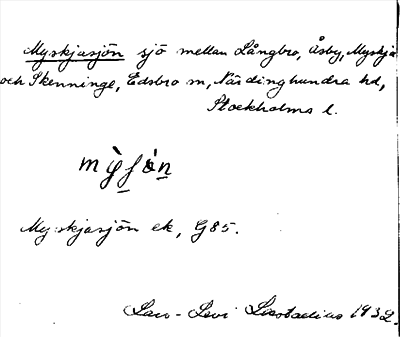 Myskjasjön sjö mellan Långbro, Åsby, Myskja
och Skenninge, Edsbro sn, Närdinghundra hd,
Stockholms l.
Myskjasjön ek, G85.
Lars-Levi Læstadius 1932.